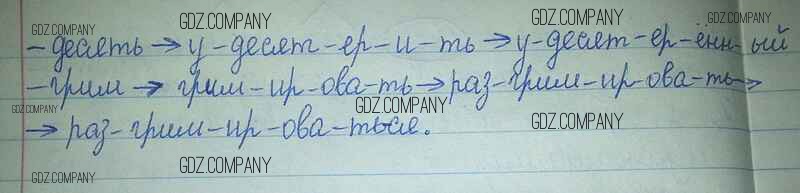 GDZ.COMPANY GDZ.COMPANY
GDZ.COMPANY
- десять → у-десят-ер-и-ть → у-десят-ер-ённ-ый
- грим → грим-ир-ова-ть → раз-грим-ир-ова-ть →
GDZ.COMPANY GDZ.COMPANY
→ раз-грим-ир-ова-ться.
GDZ.COMPANY
GDZ.COMPANY
GDZ.COMPANY GDZ.COMPANY